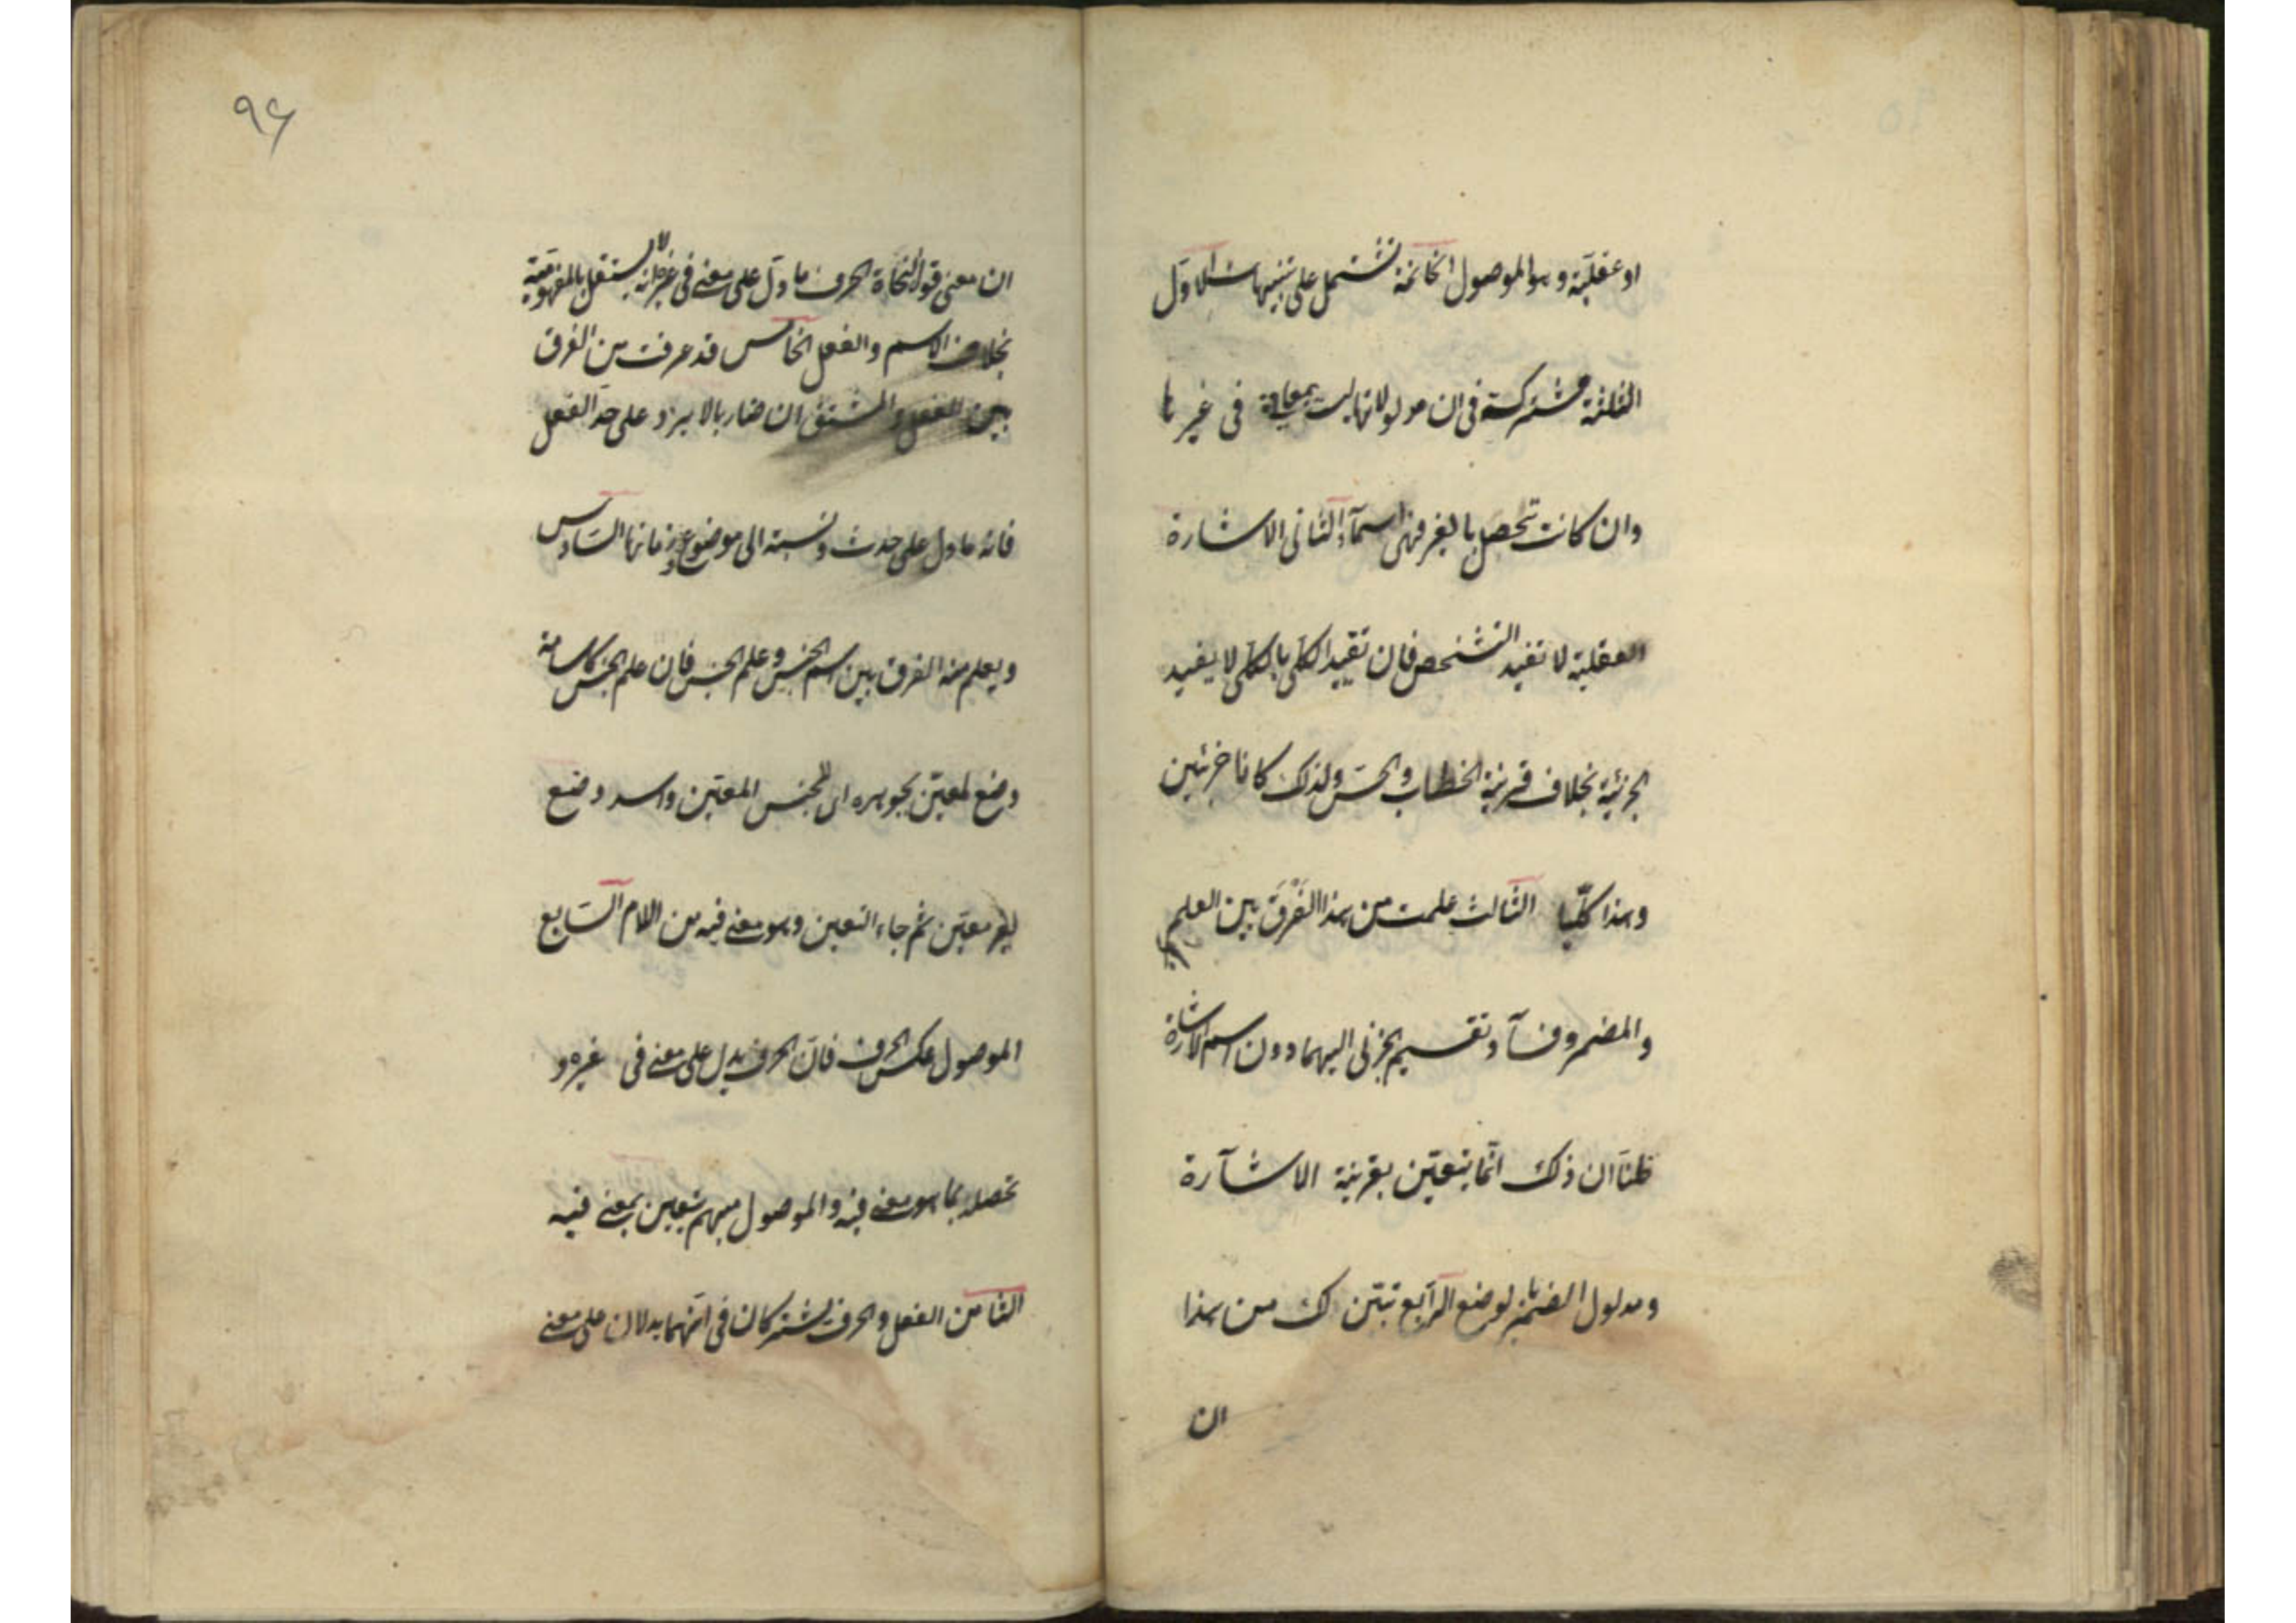 او عقلية وهو الموصول الخاتمة تشتمل على تنبيهات الاول
الثلثة مشتركة فى ان مدلولاتها ليست بمعان فى غيرها
وان كانت تحصل بالغير فهى اسماء الثانى الاشارة
العقلية لا تفيد التشخص فان تقييد الكلى بالكلى لا يفيد
الجزئية بخلاف قرينة الخطاب والحس ولذلك كانا جزئيين
وهذا كليا الثالث علمت من هذا الفرق بين العلم
والمضمر وفساد تقسيم الجزئى اليهما دون اسم الاشارة
ظنا ان ذلك انما يتعين بقرينة الاشارة
ومدلول الضمير بالوضع الرابع تبين لك من هذا
ان
٩۶
ان معنى قول النحاة الحرف ما دل على معنى فى غيره انه لا يستقل بالمفهومية
بخلاف الاسم والفعل الخامس قد عرفت من الفرق
بين الفعل والمشتق ان ضاربا لا يرد على حد الفعل
فانه ما دل على حدث ونسبة الى موضوع وزمانها السادس
ويعلم منه الفرق بين اسم الجنس وعلم الجنس فان علم الجنس كاسامة
وضع لمعين بجوهره اى للجنس المعين واسد وضع
لغير معين ثم جاء التعين وهو معنى فيه من اللام السابع
الموصول عكس الحرف فان الحرف يدل على معنى فى غيره و
تحصله بما هو معنى فيه والموصول مبهم يتعين بمعنى فيه
الثامن الفعل والحرف يشتركان فى انهما يدلان على معنى